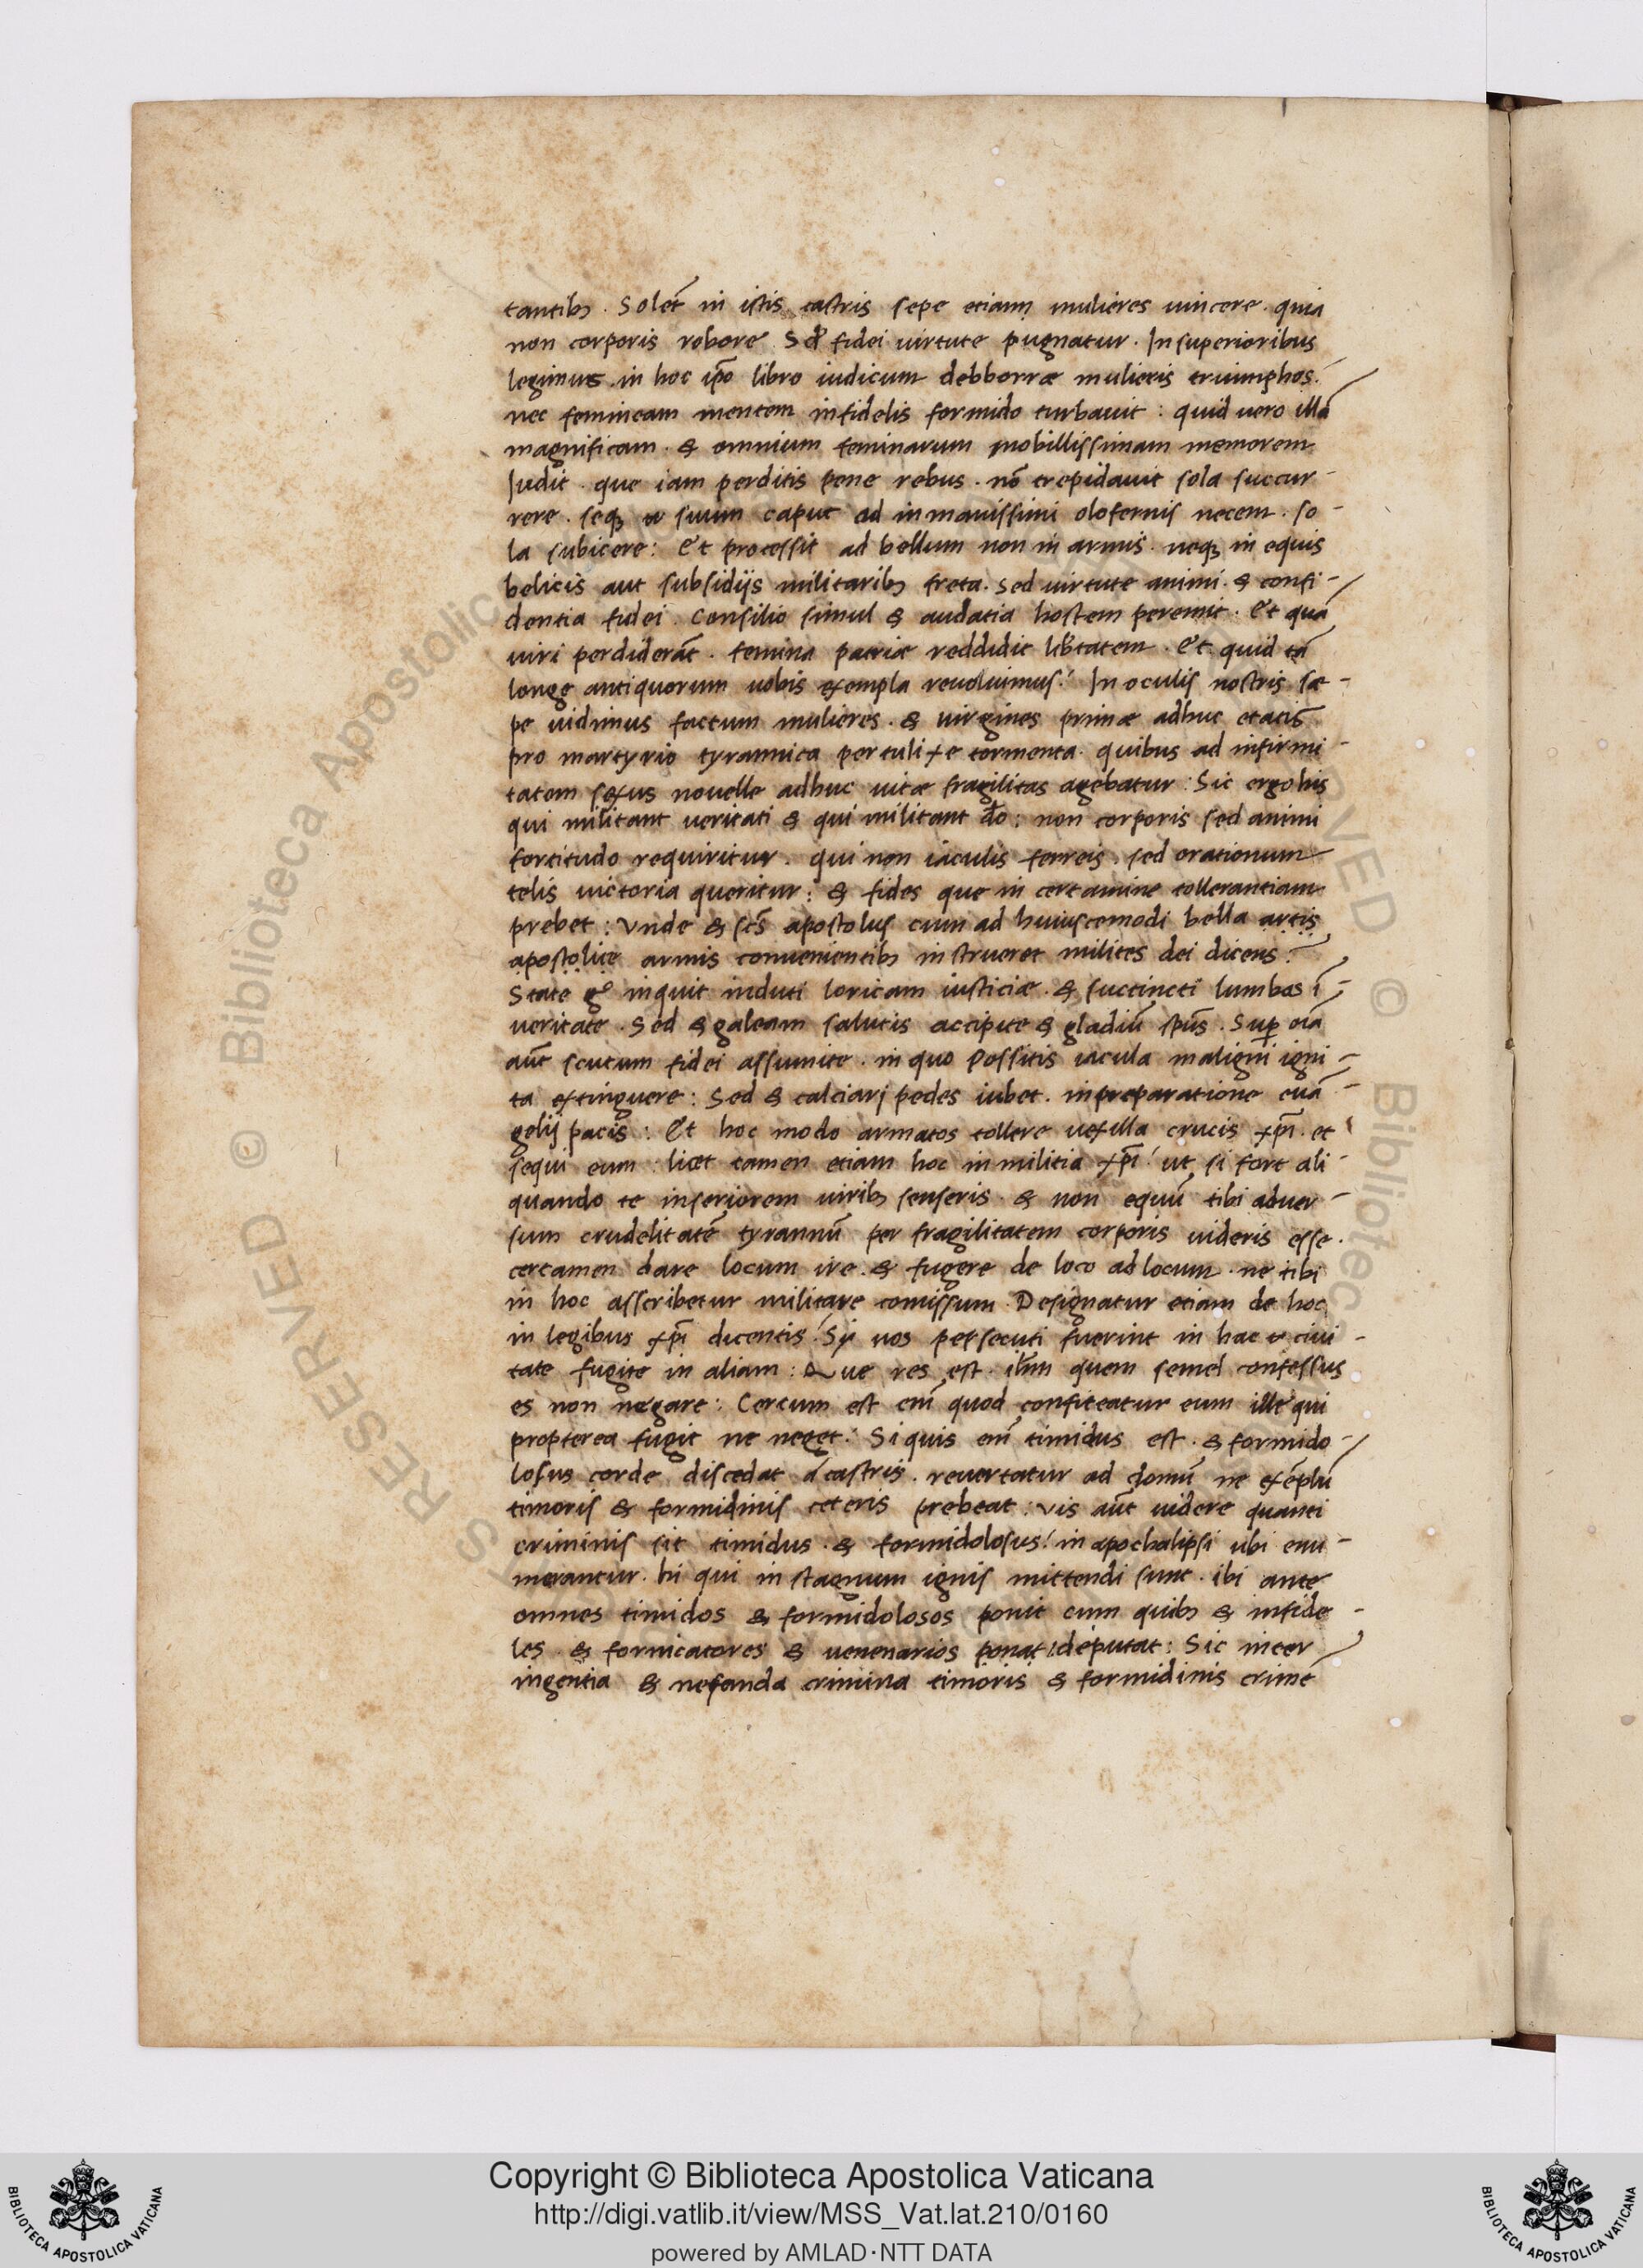 tantibꝫ . Solet̄ in istis castris sepe etiam mulieres uincere . quia
non corporis robore Sꝫ fidei uirtute pugnatur . In superioribus
legimus . in hoc ip̄o libro iudicum debborræ mulieris triumphos .
nec femineam mentem infidelis formido turbauit : quid uero illā
magnificam . & omnium feminarum nobillissimam memorem
Judit . que iam perditis pene rebus . nō trepidauit sola succur-
rere . seqꝫ suum caput ad inmanissimi olofernis necem . so-
la subicere : Et processit ad bellum non in armis . neqꝫ in equis
belicis aut subsidijs militaribꝫ freta . Sed uirtute animi . & confi-
dentia fidei . Consilio simul & audatia hostem peremit . Et quā
uiri perdiderāt . femina patriæ reddidit lib̄tatem . Et quid tā
longe antiquorum uobis exempla reuoluimus ? In oculis nostris sæ-
pe uidimus factum mulieres . & uirgines primæ adhuc etatis
pro martyrio tyrannica pertulixe tormenta . quibus ad infirmi-
tatem sexus nouelle adhuc uitæ fragilitas agebatur : Sic ergo his
qui militant ueritati & qui militant dō : non corporis sed animi
fortitudo requiritur . qui non iaculis ferreis . sed orationum
telis uictoria queritur : & fides que in certamine tollerantiam
prebet : Vnde & sc̄s apostolus cum ad huiuscemodi bella artis
apostolice armis conuenientibꝫ instrueret milites dei dicens :
State gͦ inquit induti loricam iusticiæ . & succincti lumbos ī
ueritate . Sed & galeam salutis accipite & gladiū sp̄us . Sup̱ oīa
aūt scutum fidei assumite . in quo possitis iacula maligni igni-
ta extinguere : Sed & calciari pedes iubet . in preparatione euā-
gelij pacis : Et hoc modo armatos tollere uexilla crucis xp̄i . et
sequi eum : licet tamen etiam hoc in militia xp̄i ! ut si fort ali-
quando te inferiorem uiribꝫ senseris . & non equū tibi aduer-
sum crudelitatē tyrannū per fragilitatem corporis uideris esse .
certamen dare locum ire . & fugere de loco ad locum . ne tibi
in hoc asscribetur militare comissum . Designatur etiam de hoc
in legibus xp̄i dicentis ! Si uos persecuti fuerint in hac ciui-
tate fugite in aliam : Que res est . ih̄m quem semel confessus
es non negare : Certum est eni᷑ quod confiteatur eum ille qui
propterea fugit ne neget : Si quis eni᷑ timidus est . & formido-
losus corde discedat á castris . reuertatur ad domū ne exēplū
timoris & formidinis ceteris prebeat : uis aūt uidere quanti
criminis sit timidus . & formidolosus ! in apochalipsi ubi enu-
merantur . hi qui in stagnum ignis mittendi sunt . ibi ante
omnes timidos & formidolosos ponit cum quibꝫ & infide-
les . & fornicatores & uenenarios ponat deputat : Sic inter
ingentia & nefanda crimina timoris & formidinis crimē
Copyright © Biblioteca Apostolica Vaticana
http://digi.vatlib.it/view/MSS_Vat.lat.210/0160
powered by AMLAD·NTT DATA